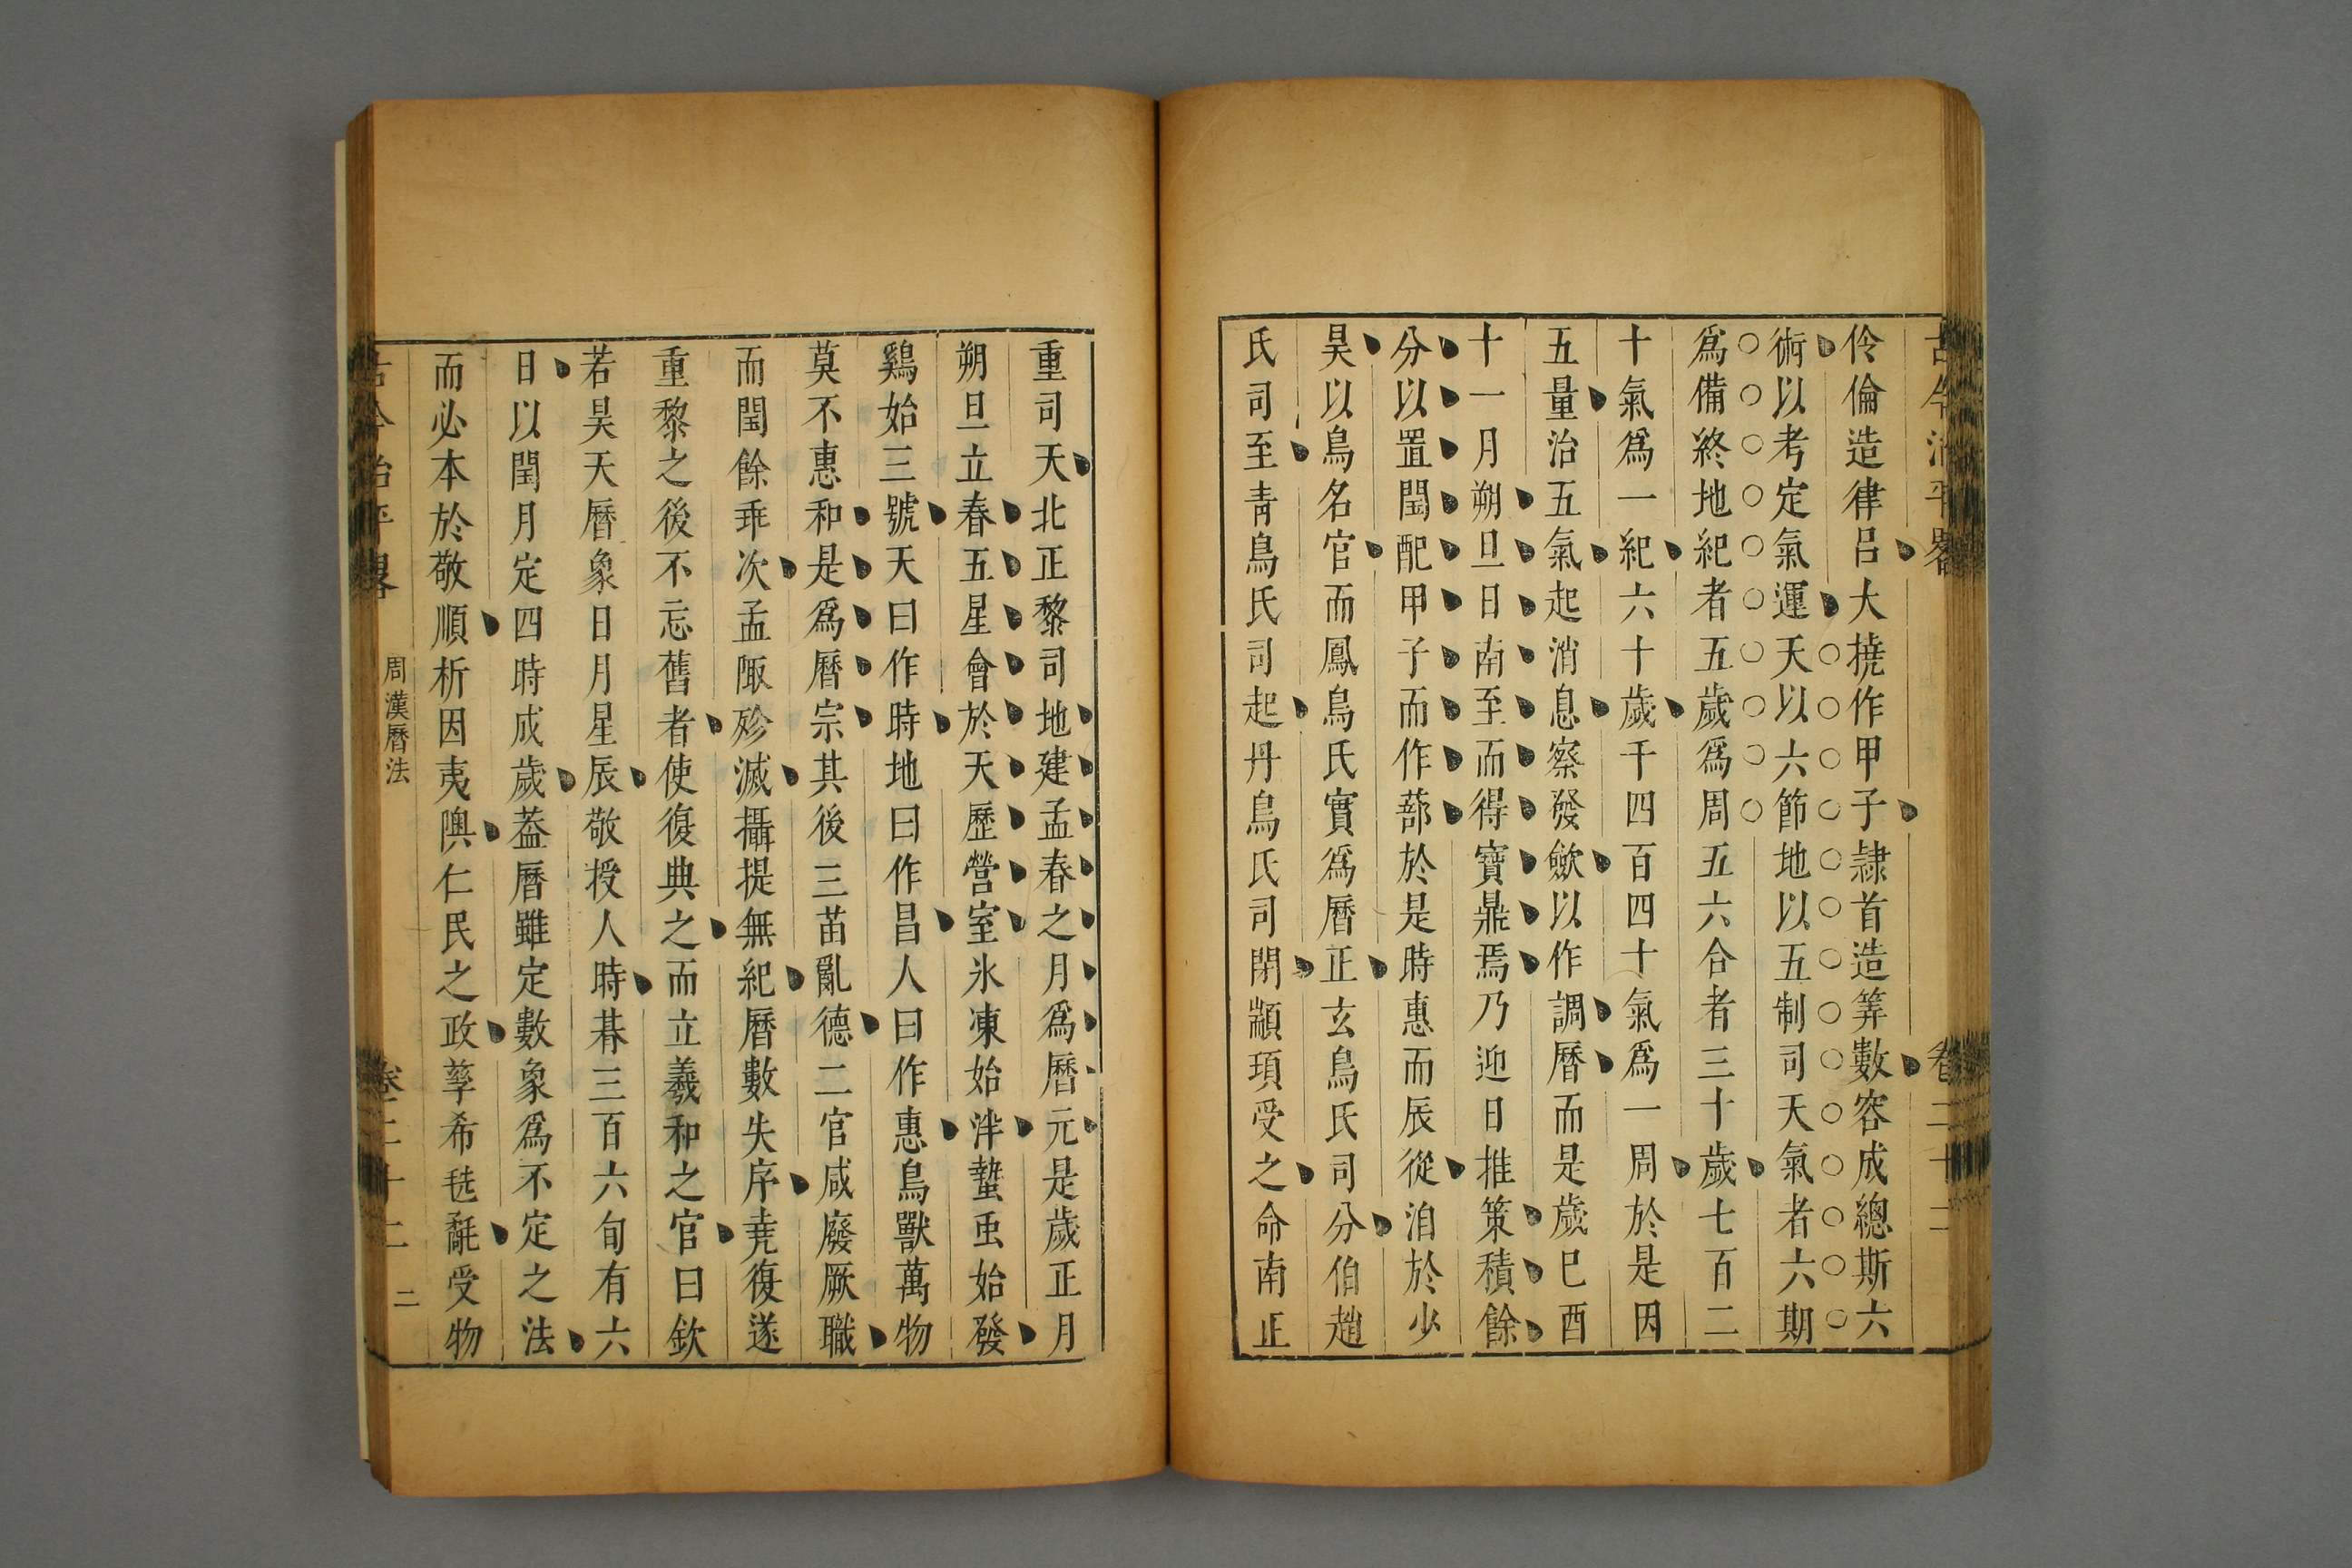 古今治平畧 卷二十二
伶倫造律呂大撓作甲子隷首造筭數容成總斯六
術以考定氣運天以六節地以五制司天氣者六期
爲備終地紀者五歲爲周五六合者三十歲七百二
十氣爲一紀六十歲千四百四十氣爲一周於是因
五量治五氣起消息察發歛以作調曆而是歲巳酉
十一月朔旦日南至而得寶鼎焉乃迎日推策積餘
分以置閏配甲子而作蔀於是時惠而辰從洎於少
昊以鳥名官而鳳鳥氏實爲曆正玄鳥氏司分伯趙
氏司至靑鳥氏司起丹鳥氏司閉顓頊受之命南正
重司天北正黎司地建孟春之月爲曆元是歲正月
朔旦立春五星會於天歷營室氷凍始泮蟄䖝始發
鷄始三號天曰作時地曰作昌人曰作惠鳥獸萬物
莫不惠和是爲曆宗其後三苗亂德二官咸廢厥職
而閏餘乖次孟陬殄滅攝提無紀曆數失序堯復遂
重黎之後不忘舊者使復典之而立羲和之官曰欽
若昊天曆象日月星辰敬授人時朞三百六旬有六
日以閏月定四時成歲葢曆雖定數象爲不定之法
而必本於敬順析因夷隩仁民之政孳希毨氄受物
古今治平畧 周漢曆法 卷二十二 二